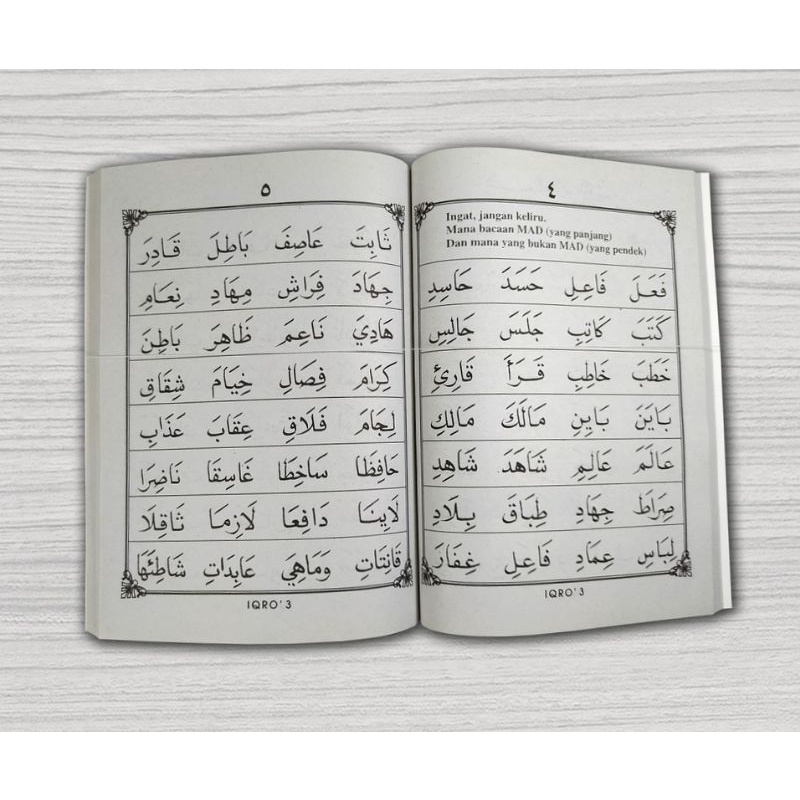 ٤
Ingat, jangan keliru.
Mana bacaan MAD (yang panjang)
Dan mana yang bukan MAD (yang pendek)
فَعَلَ فَاعِلِ حَسَدَ حَاسِدِ
كَتَبَ كَاتِبِ جَلَسَ جَالِسِ
خَطَبَ خَاطِبِ قَرَأَ قَارِئِ
بَايَنَ بَايِنِ مَالَكَ مَالِكِ
عَالَمَ عَالِمِ شَاهَدَ شَاهِدِ
صِرَاطَ جِهَادِ طِبَاقَ بِلَادِ
لِبَاسِ عِمَادِ فَاعِلِ غِفَارَ
IQRO' 3
٥
ثَابِتَ عَاصِفَ بَاطِلَ قَادِرَ
جِهَادَ فِرَاشِ مِهَادِ نِعَامِ
هَادِيَ نَاعِمَ ظَاهِرَ بَاطِنَ
كِرَامَ فِصَالِ خِيَامَ شِقَاقِ
لِجَامَ فَلَاقِ عِقَابَ عَذَابِ
حَافِظَا سَاخِطَا غَاسِقَا نَاضِرَا
لَايِنَا دَافِعَا لَازِمَا ثَاقِلَا
قَانِتَاتِ وَمَاهِيَ عَابِدَاتِ شَاطِئَهَا
IQRO' 3